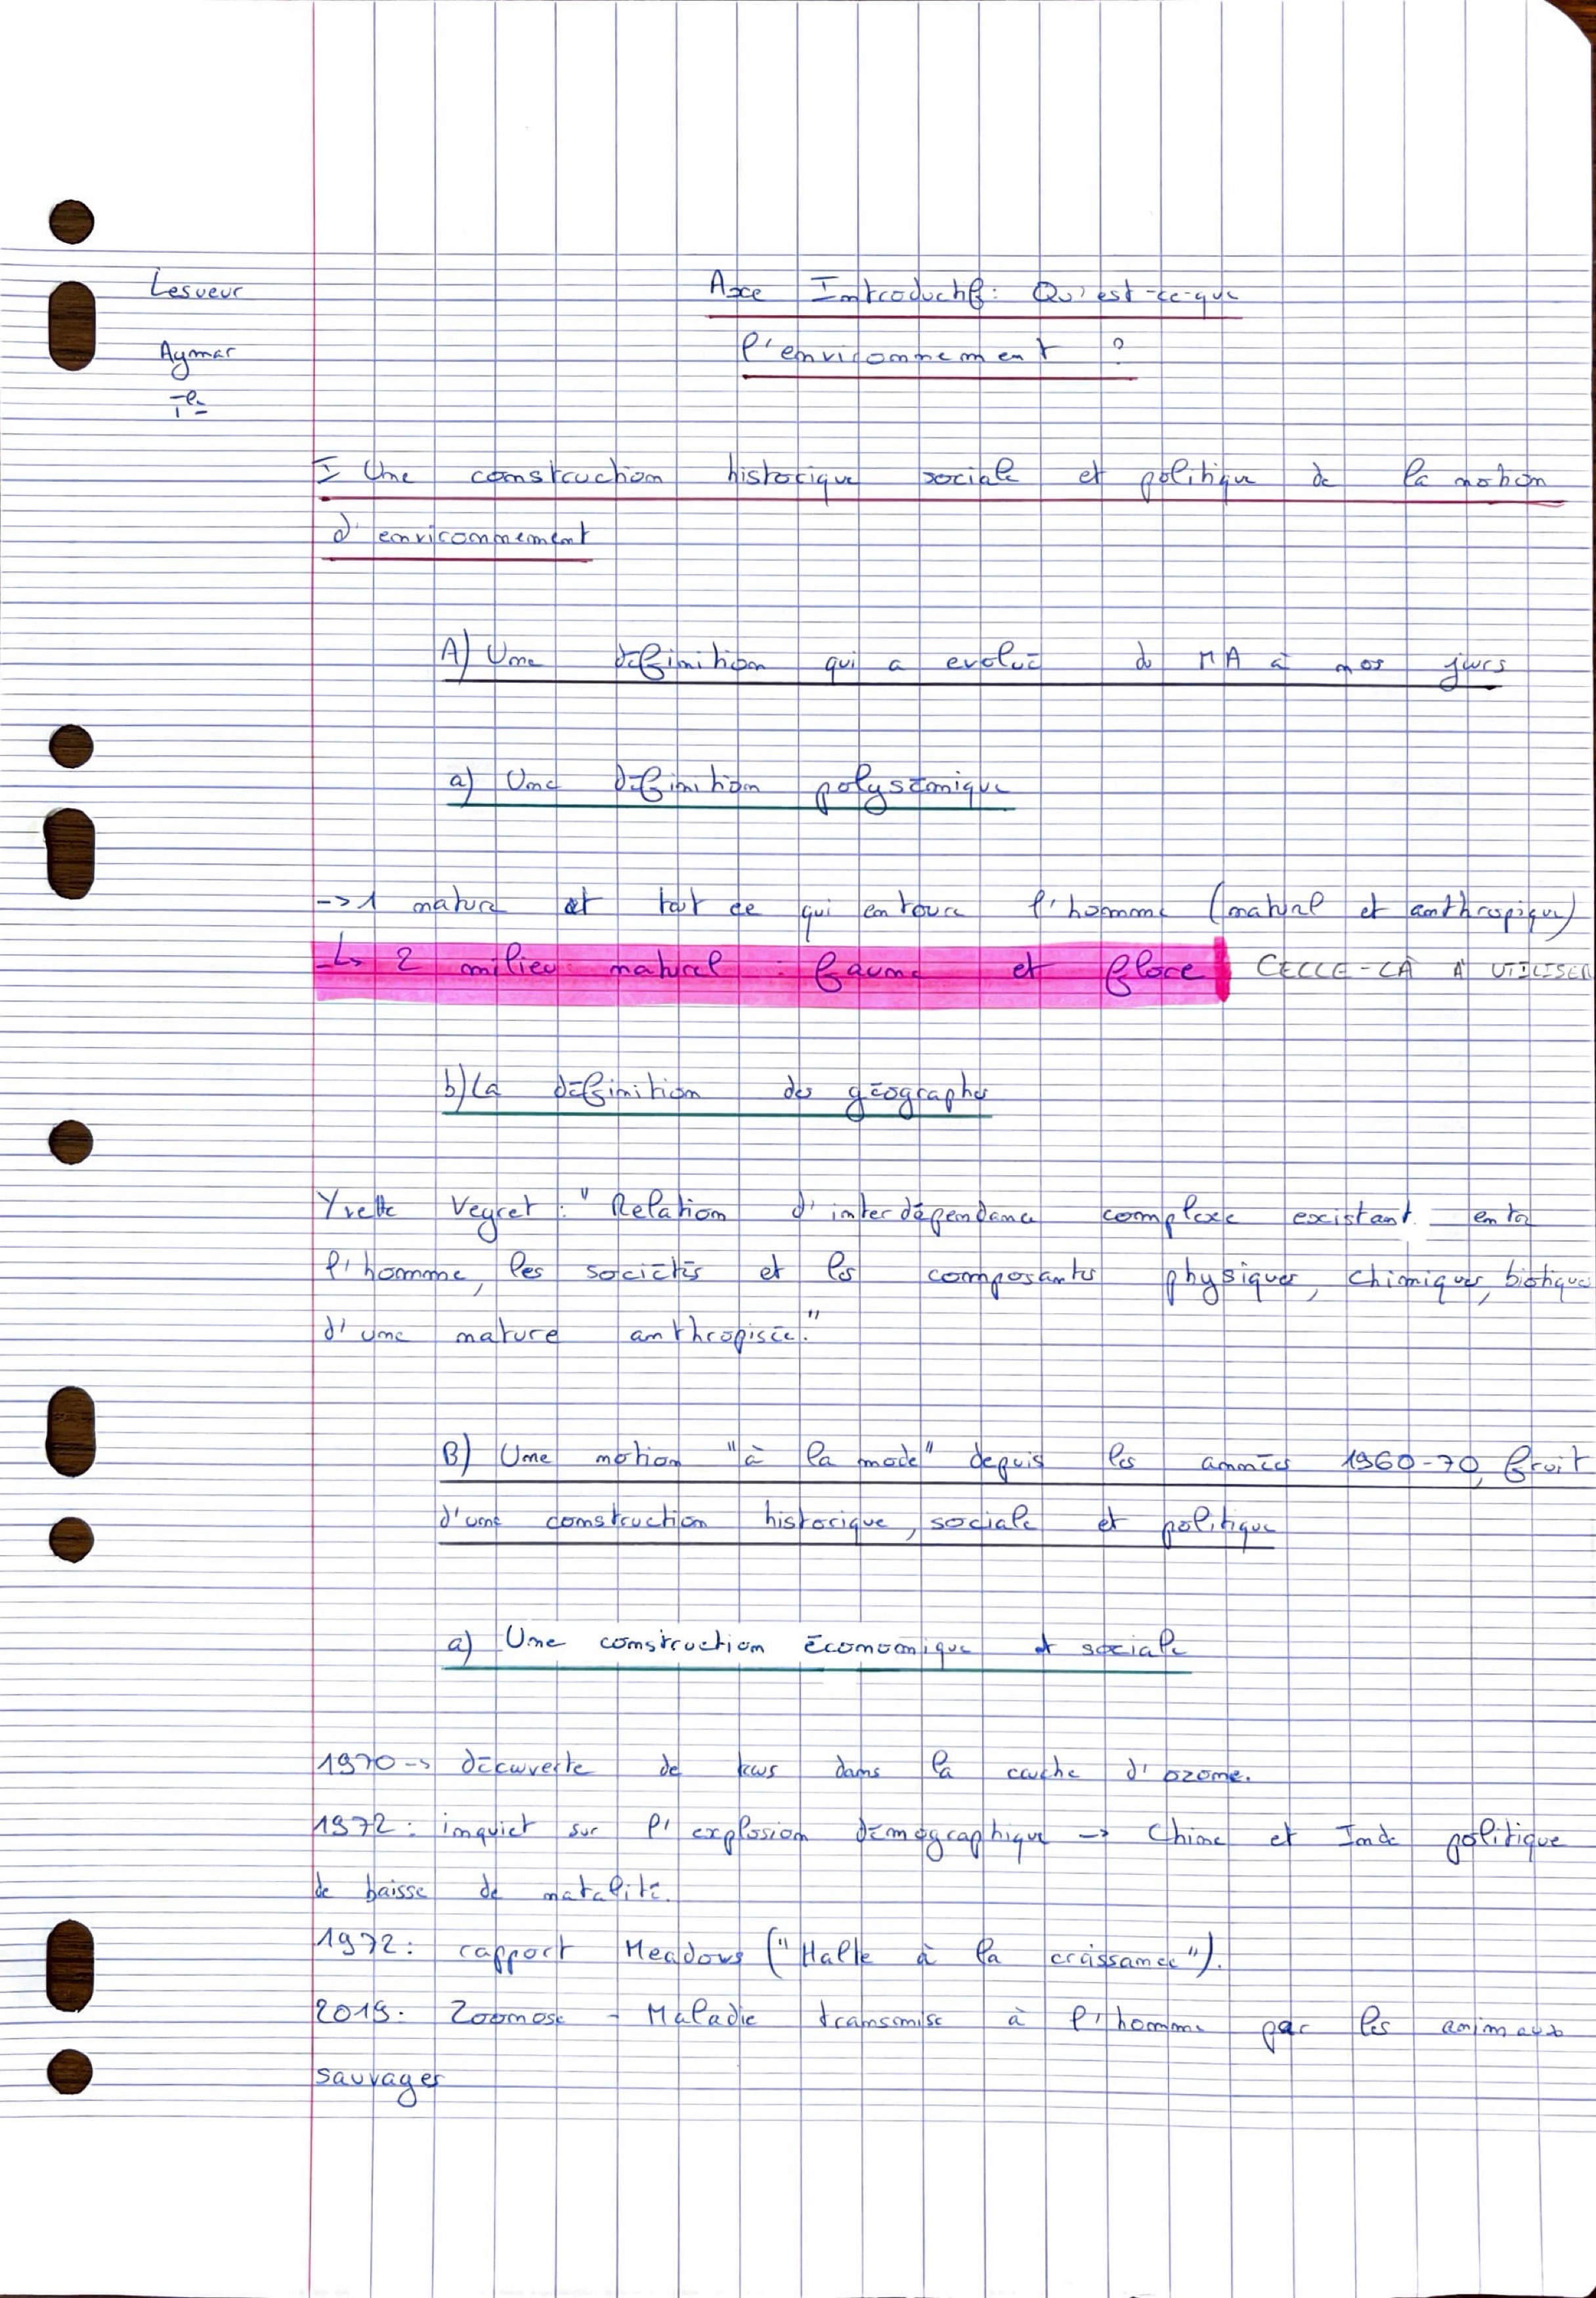 Lesueur
Axe Introductif: Qu'est-ce-que
Aymar
l'environnement ?
Tle
I Une construction historique sociale et politique de la notion
d'environnement
A) Une définition qui a evolué du MA à nos jours
a) Une définition polysémique
-> 1 nature et tout ce qui entoure l'homme (naturel et anthropique)
↳ 2 milieu naturel : faune et flore CELLE-LÀ À UTILISER
b) La définition des géographes
Yvette Veyret : "Relation d'interdépendance complexe existant entre
l'homme, les sociétés et les composantes physiques, chimiques, biotiques
d'une nature anthropisée."
B) Une notion "à la mode" depuis les années 1960-70, fruit
d'une construction historique, sociale et politique
a) Une construction économique et sociale
1970 -> découverte de trous dans la couche d'ozone.
1972 : inquiet sur l'explosion démographique -> Chine et Inde politique
de baisse de natalité.
1972 : rapport Meadows ("Halte à la croissance").
2019 : Zoonose - Maladie transmise à l'homme par les animaux
sauvages